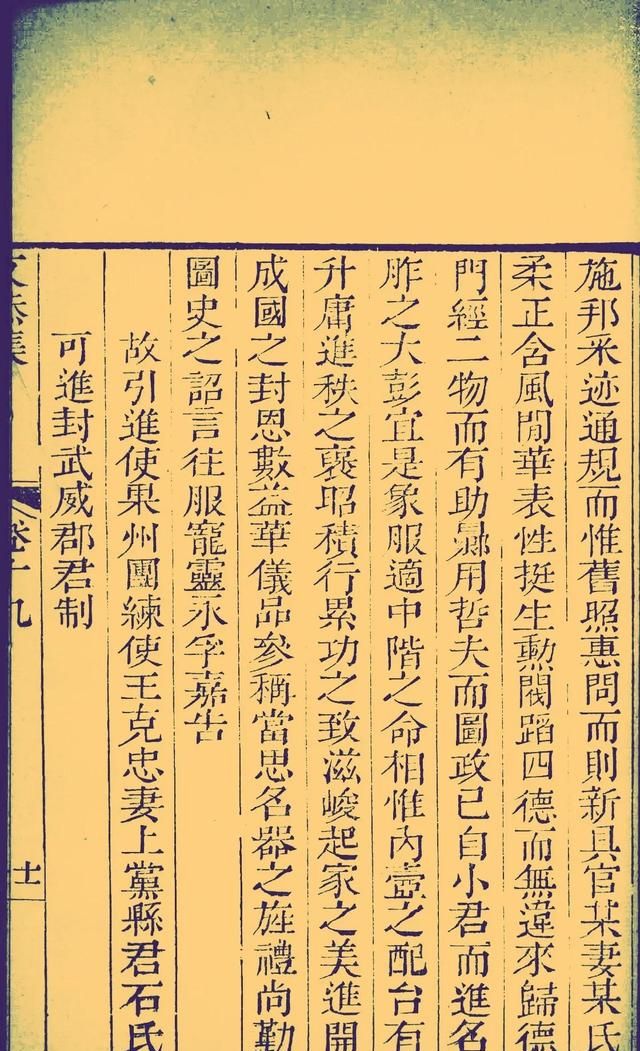 施邦采迹通規而惟舊照惠問而則新具官某妻某氏
柔正含風閒華表性挺生勳閥蹈四德而無違來歸德
門經二物而有助爨用哲夫而圖政已自小君而進名
胙之大彭宜是象服適中階之命相惟內壼之配台有
升庸進秩之褒昭積行累功之致滋峻起家之美進開
成國之封恩數益華儀品參稱當思名器之旌禮尚勤
圖史之詔言往服寵靈永孚嘉告
故引進使果州團練使王克忠妻上黨縣君石氏
可進封武威郡君制
文恭集
卷十九
士